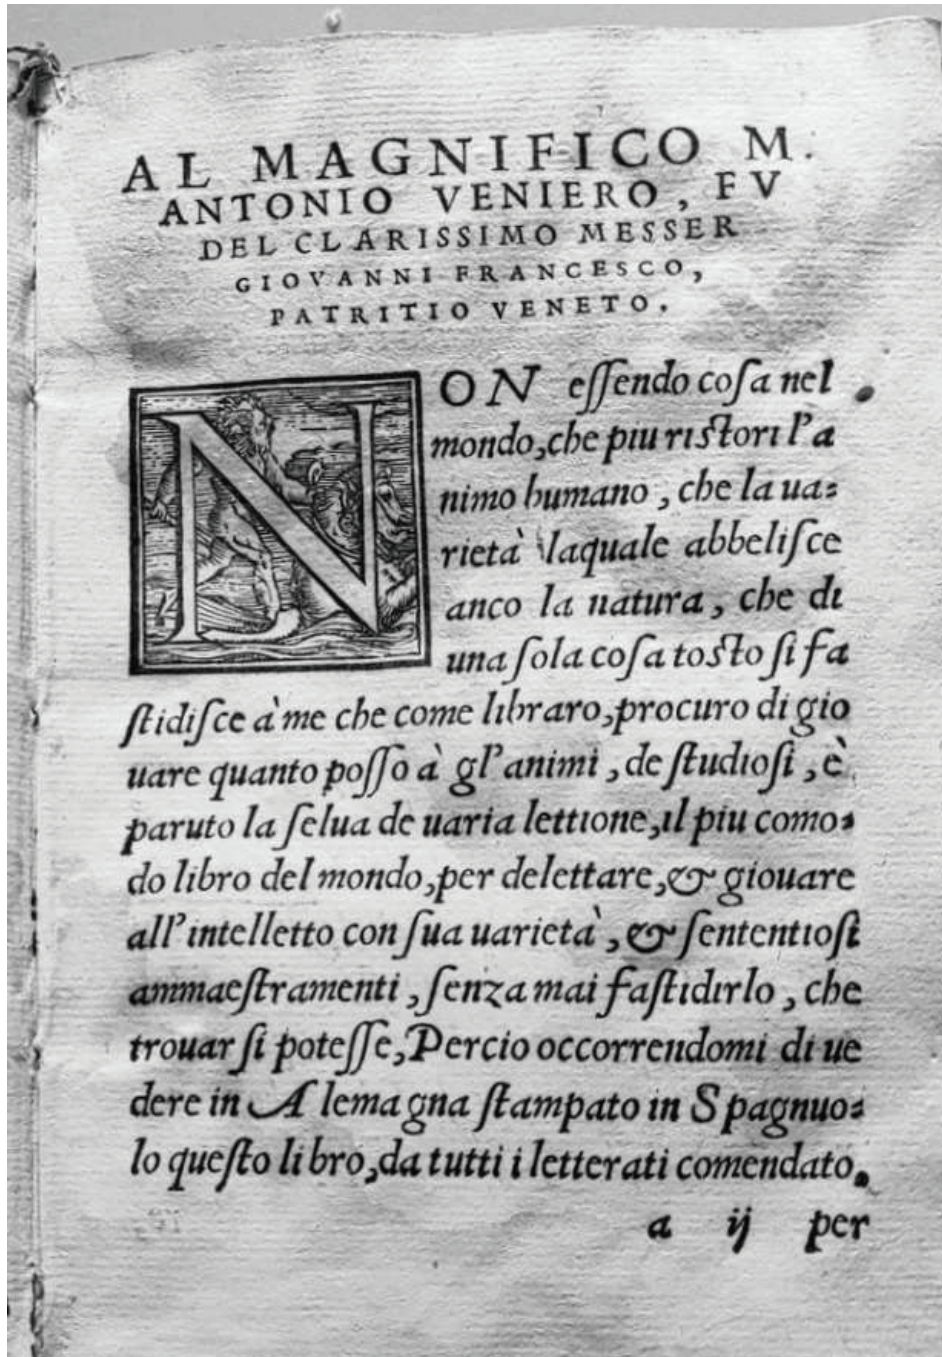 AL MAGNIFICO M.
ANTONIO VENIERO, FV
DEL CLARISSIMO MESSER
GIOVANNI FRANCESCO,
PATRITIO VENETO.
NON eſſendo coſa nel
mondo, che piu riſtori l'a
nimo humano, che la ua-
rietà laquale abbeliſce
anco la natura, che di
una ſola coſa toſto ſi fa
ſtidiſce à me che come libraro, procuro di gio
uare quanto poſſo à gl'animi, de ſtudioſi, è
paruto la ſelua de uaria lettione, il piu como-
do libro del mondo, per delettare, & giouare
all'intelletto con ſua uarietà, & ſententioſi
ammaeſtramenti, ſenza mai faſtidirlo, che
trouar ſi poteſſe, Percio occorrendomi di ue
dere in Alemagna ſtampato in Spagnuo-
lo queſto libro, da tutti i letterati comendato.
a ij per